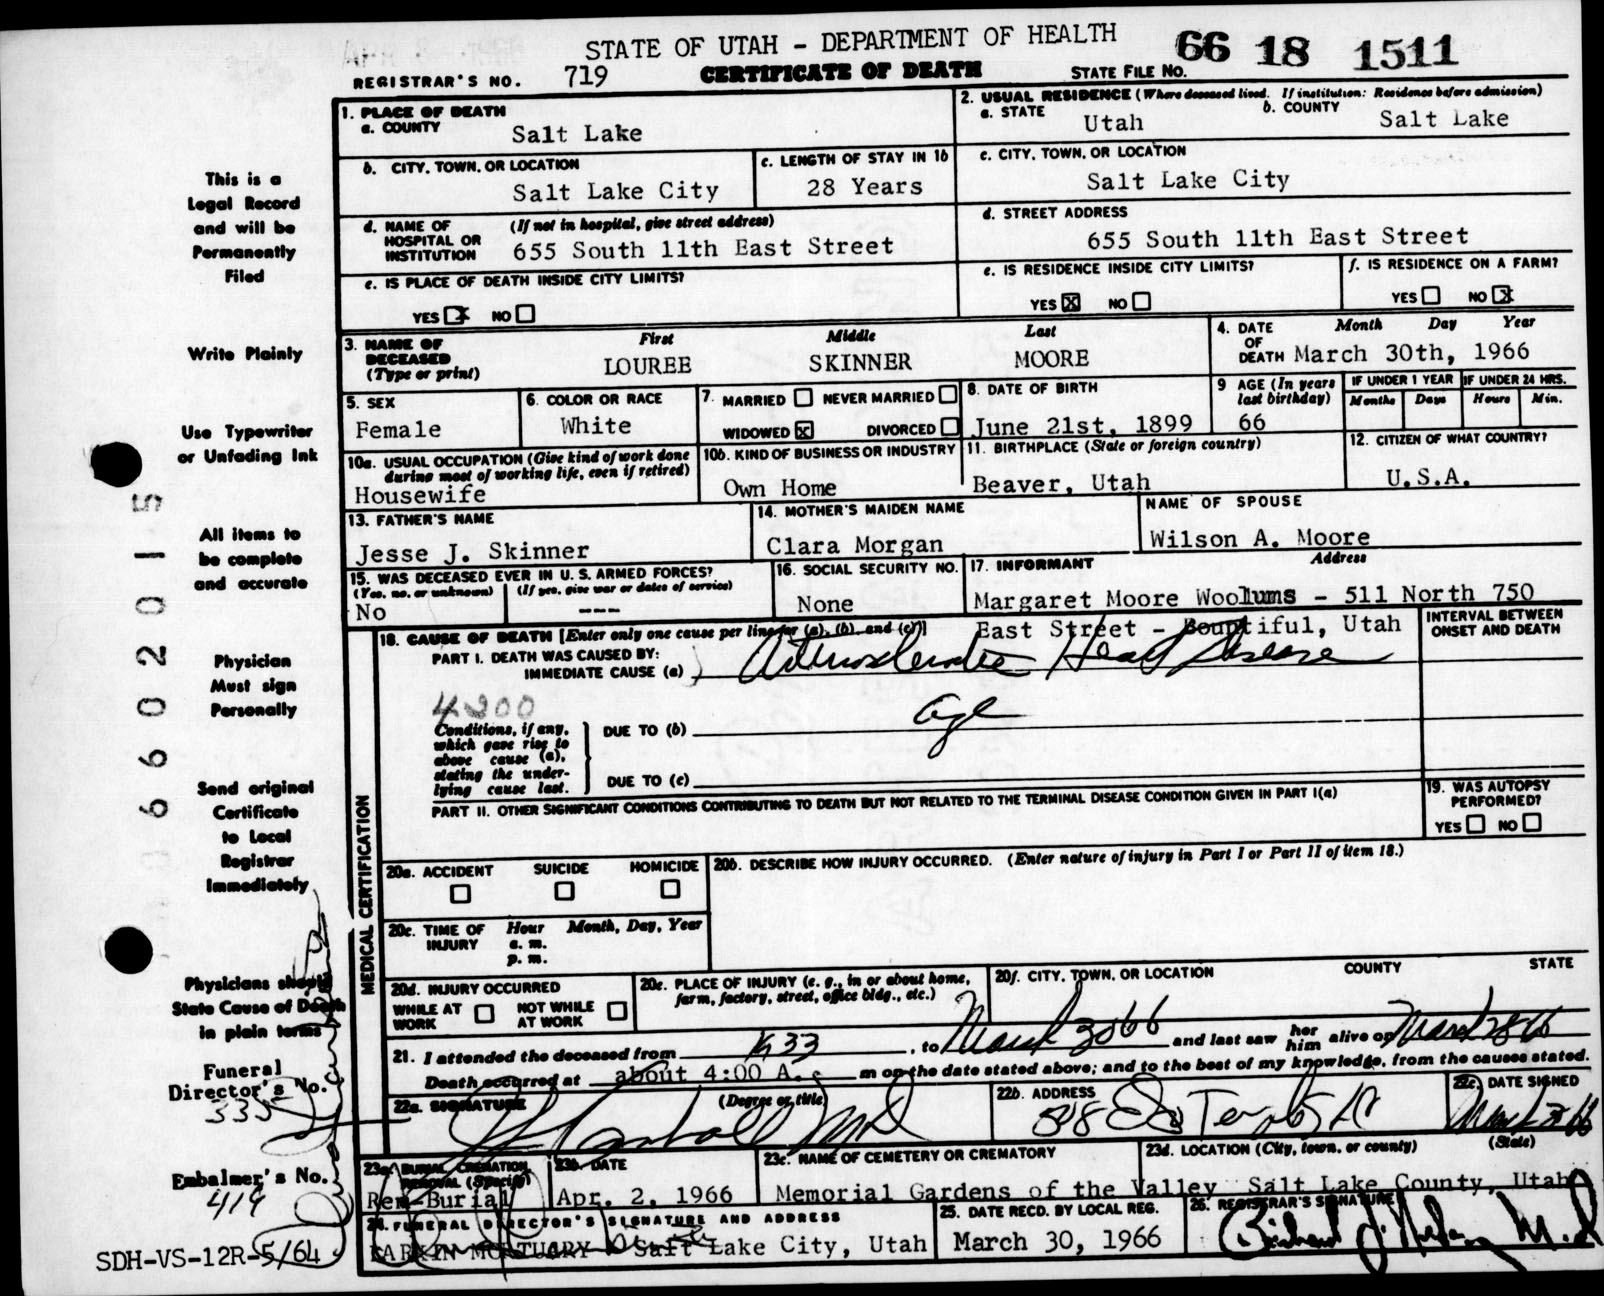 STATE OF UTAH - DEPARTMENT OF HEALTH
66 18 1511
REGISTRAR'S NO. 719
CERTIFICATE OF DEATH
STATE FILE NO.
1. PLACE OF DEATH
a. COUNTY Salt Lake
2. USUAL RESIDENCE (Where deceased lived. If institution: Residence before admission)
a. STATE Utah
b. COUNTY Salt Lake
b. CITY, TOWN, OR LOCATION Salt Lake City
c. LENGTH OF STAY IN 1b 28 Years
c. CITY, TOWN, OR LOCATION Salt Lake City
d. NAME OF HOSPITAL OR INSTITUTION (If not in hospital, give street address) 655 South 11th East Street
d. STREET ADDRESS 655 South 11th East Street
e. IS PLACE OF DEATH INSIDE CITY LIMITS?
YES X NO
e. IS RESIDENCE INSIDE CITY LIMITS?
YES X NO
f. IS RESIDENCE ON A FARM?
YES NO X
3. NAME OF DECEASED (Type or print)
First Middle Last
LOUREE SKINNER MOORE
4. DATE OF DEATH Month Day Year
March 30th, 1966
5. SEX Female
6. COLOR OR RACE White
7. MARRIED NEVER MARRIED
WIDOWED X DIVORCED
8. DATE OF BIRTH June 21st, 1899
9 AGE (In years last birthday) 66
IF UNDER 1 YEAR Months Days
IF UNDER 24 HRS. Hours Min.
10a. USUAL OCCUPATION (Give kind of work done during most of working life, even if retired)
Housewife
10b. KIND OF BUSINESS OR INDUSTRY
Own Home
11. BIRTHPLACE (State or foreign country)
Beaver, Utah
12. CITIZEN OF WHAT COUNTRY?
U.S.A.
13. FATHER'S NAME
Jesse J. Skinner
14. MOTHER'S MAIDEN NAME
Clara Morgan
NAME OF SPOUSE
Wilson A. Moore
15. WAS DECEASED EVER IN U. S. ARMED FORCES?
(Yes, no, or unknown) (If yes, give war or dates of service)
No ---
16. SOCIAL SECURITY NO.
None
17. INFORMANT Address
Margaret Moore Woolums - 511 North 750
East Street - Bountiful, Utah
18. CAUSE OF DEATH [Enter only one cause per line for (a), (b), and (c)]
INTERVAL BETWEEN ONSET AND DEATH
PART I. DEATH WAS CAUSED BY:
IMMEDIATE CAUSE (a) Arteriosclerotic Heart Disease
4200
Conditions, if any, which gave rise to above cause (a), stating the underlying cause last.
DUE TO (b) age
DUE TO (c)
PART II. OTHER SIGNIFICANT CONDITIONS CONTRIBUTING TO DEATH BUT NOT RELATED TO THE TERMINAL DISEASE CONDITION GIVEN IN PART I(a)
19. WAS AUTOPSY PERFORMED?
YES NO
MEDICAL CERTIFICATION
20a. ACCIDENT SUICIDE HOMICIDE
20b. DESCRIBE HOW INJURY OCCURRED. (Enter nature of injury in Part I or Part II of item 18.)
20c. TIME OF INJURY Hour Month, Day, Year
a. m.
p. m.
20d. INJURY OCCURRED
WHILE AT WORK NOT WHILE AT WORK
20e. PLACE OF INJURY (e. g., in or about home, farm, factory, street, office bldg., etc.)
20f. CITY, TOWN, OR LOCATION COUNTY STATE
21. I attended the deceased from , to March 30 66 and last saw her him alive on March 28 66
Death occurred at about 4:00 A. m on the date stated above; and to the best of my knowledge, from the causes stated.
22a. SIGNATURE (Degree or title)
22b. ADDRESS
22c. DATE SIGNED
23a. BURIAL, CREMATION, REMOVAL (Specify)
Rem-Burial
23b. DATE
Apr. 2, 1966
23c. NAME OF CEMETERY OR CREMATORY
Memorial Gardens of the Valley
23d. LOCATION (City, town, or county) (State)
Salt Lake County, Utah
24. FUNERAL DIRECTOR'S SIGNATURE AND ADDRESS
LARKIN MORTUARY Salt Lake City, Utah
25. DATE RECD. BY LOCAL REG.
March 30, 1966
26. REGISTRAR'S SIGNATURE
This is a
Legal Record
and will be
Permanently
Filed
Write Plainly
Use Typewriter
or Unfading Ink
All items to
be complete
and accurate
Physician
Must sign
Personally
Send original
Certificate
to Local
Registrar
Immediately
Physicians should
State Cause of Death
in plain terms
Funeral
Director's No.
335
Embalmer's No.
419
SDH-VS-12R-5/64
6602015